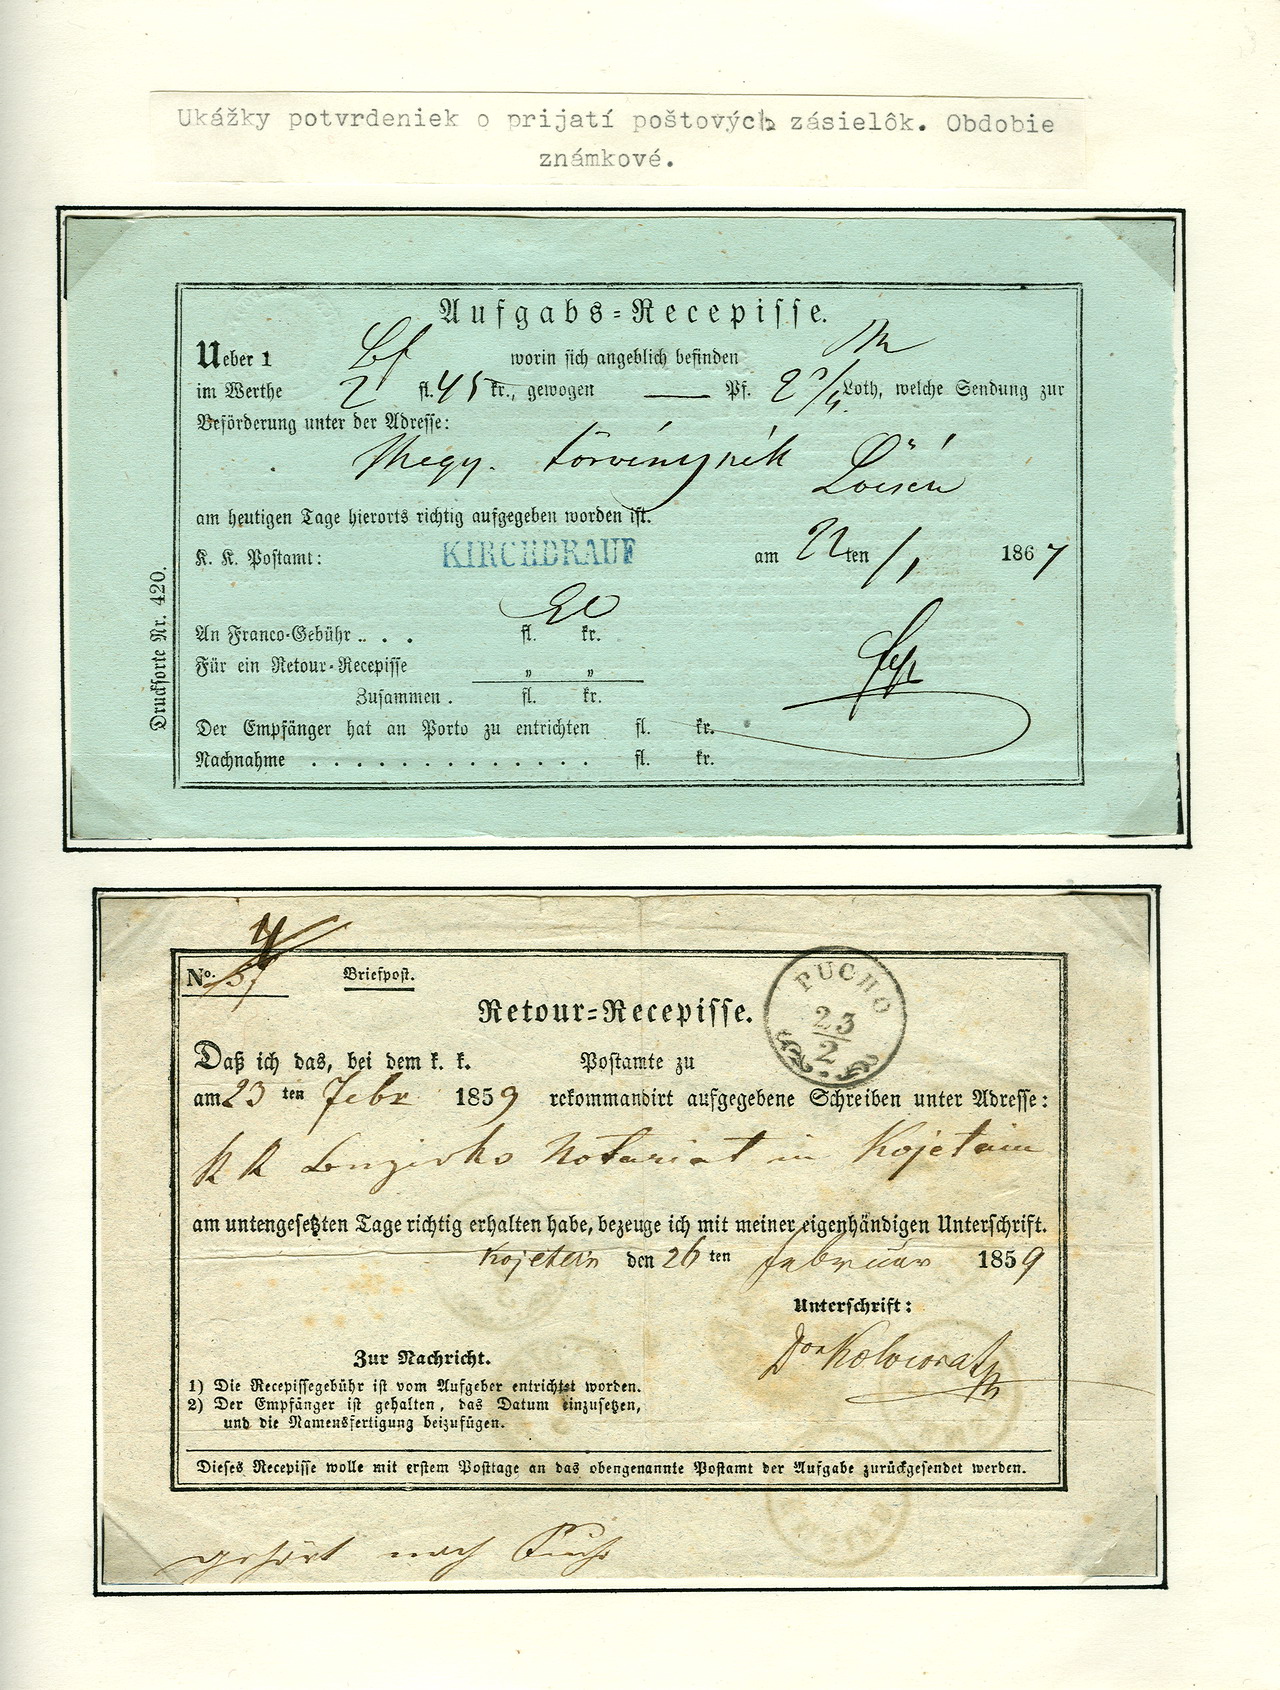 Ukážky potvrdeniek o prijatí poštových zásielôk. Obdobie
známkové.
Aufgabs-Recepisse.
Ueber 1 Bf worin sich angeblich befinden
im Werthe 2 fl. 45 kr., gewogen — Pf. 2 3/4 Loth, welche Sendung zur
Beförderung unter der Adresse:
Megy. törvényszék
Löcsén
am heutigen Tage hierorts richtig aufgegeben worden ist.
K. K. Postamt: KIRCHDRAUF am 22ten /1 1867
An Franco-Gebühr . . . fl. kr.
Für ein Retour-Recepisse " "
Zusammen . fl. kr.
Der Empfänger hat an Porto zu entrichten fl. kr.
Nachnahme . . . . . . . . . . . . . fl. kr.
Drucksorte Nr. 420.
No. Briefpost.
PUCHO
23
2
Retour-Recepisse.
Daß ich das, bei dem k. k. Postamte zu
am 23 ten Febr 1859 rekommandirt aufgegebene Schreiben unter Adresse:
KK Notariat in Kojetain
am untengesetzten Tage richtig erhalten habe, bezeuge ich mit meiner eigenhändigen Unterschrift.
Kojetein den 26 ten Februar 1859
Unterschrift:
Zur Nachricht.
1) Die Recepissegebühr ist vom Aufgeber entrichtet worden.
2) Der Empfänger ist gehalten, das Datum einzusetzen,
und die Namensfertigung beizufügen.
Dieses Recepisse wolle mit erstem Posttage an das obengenannte Postamt der Aufgabe zurückgesendet werden.
gehört nach